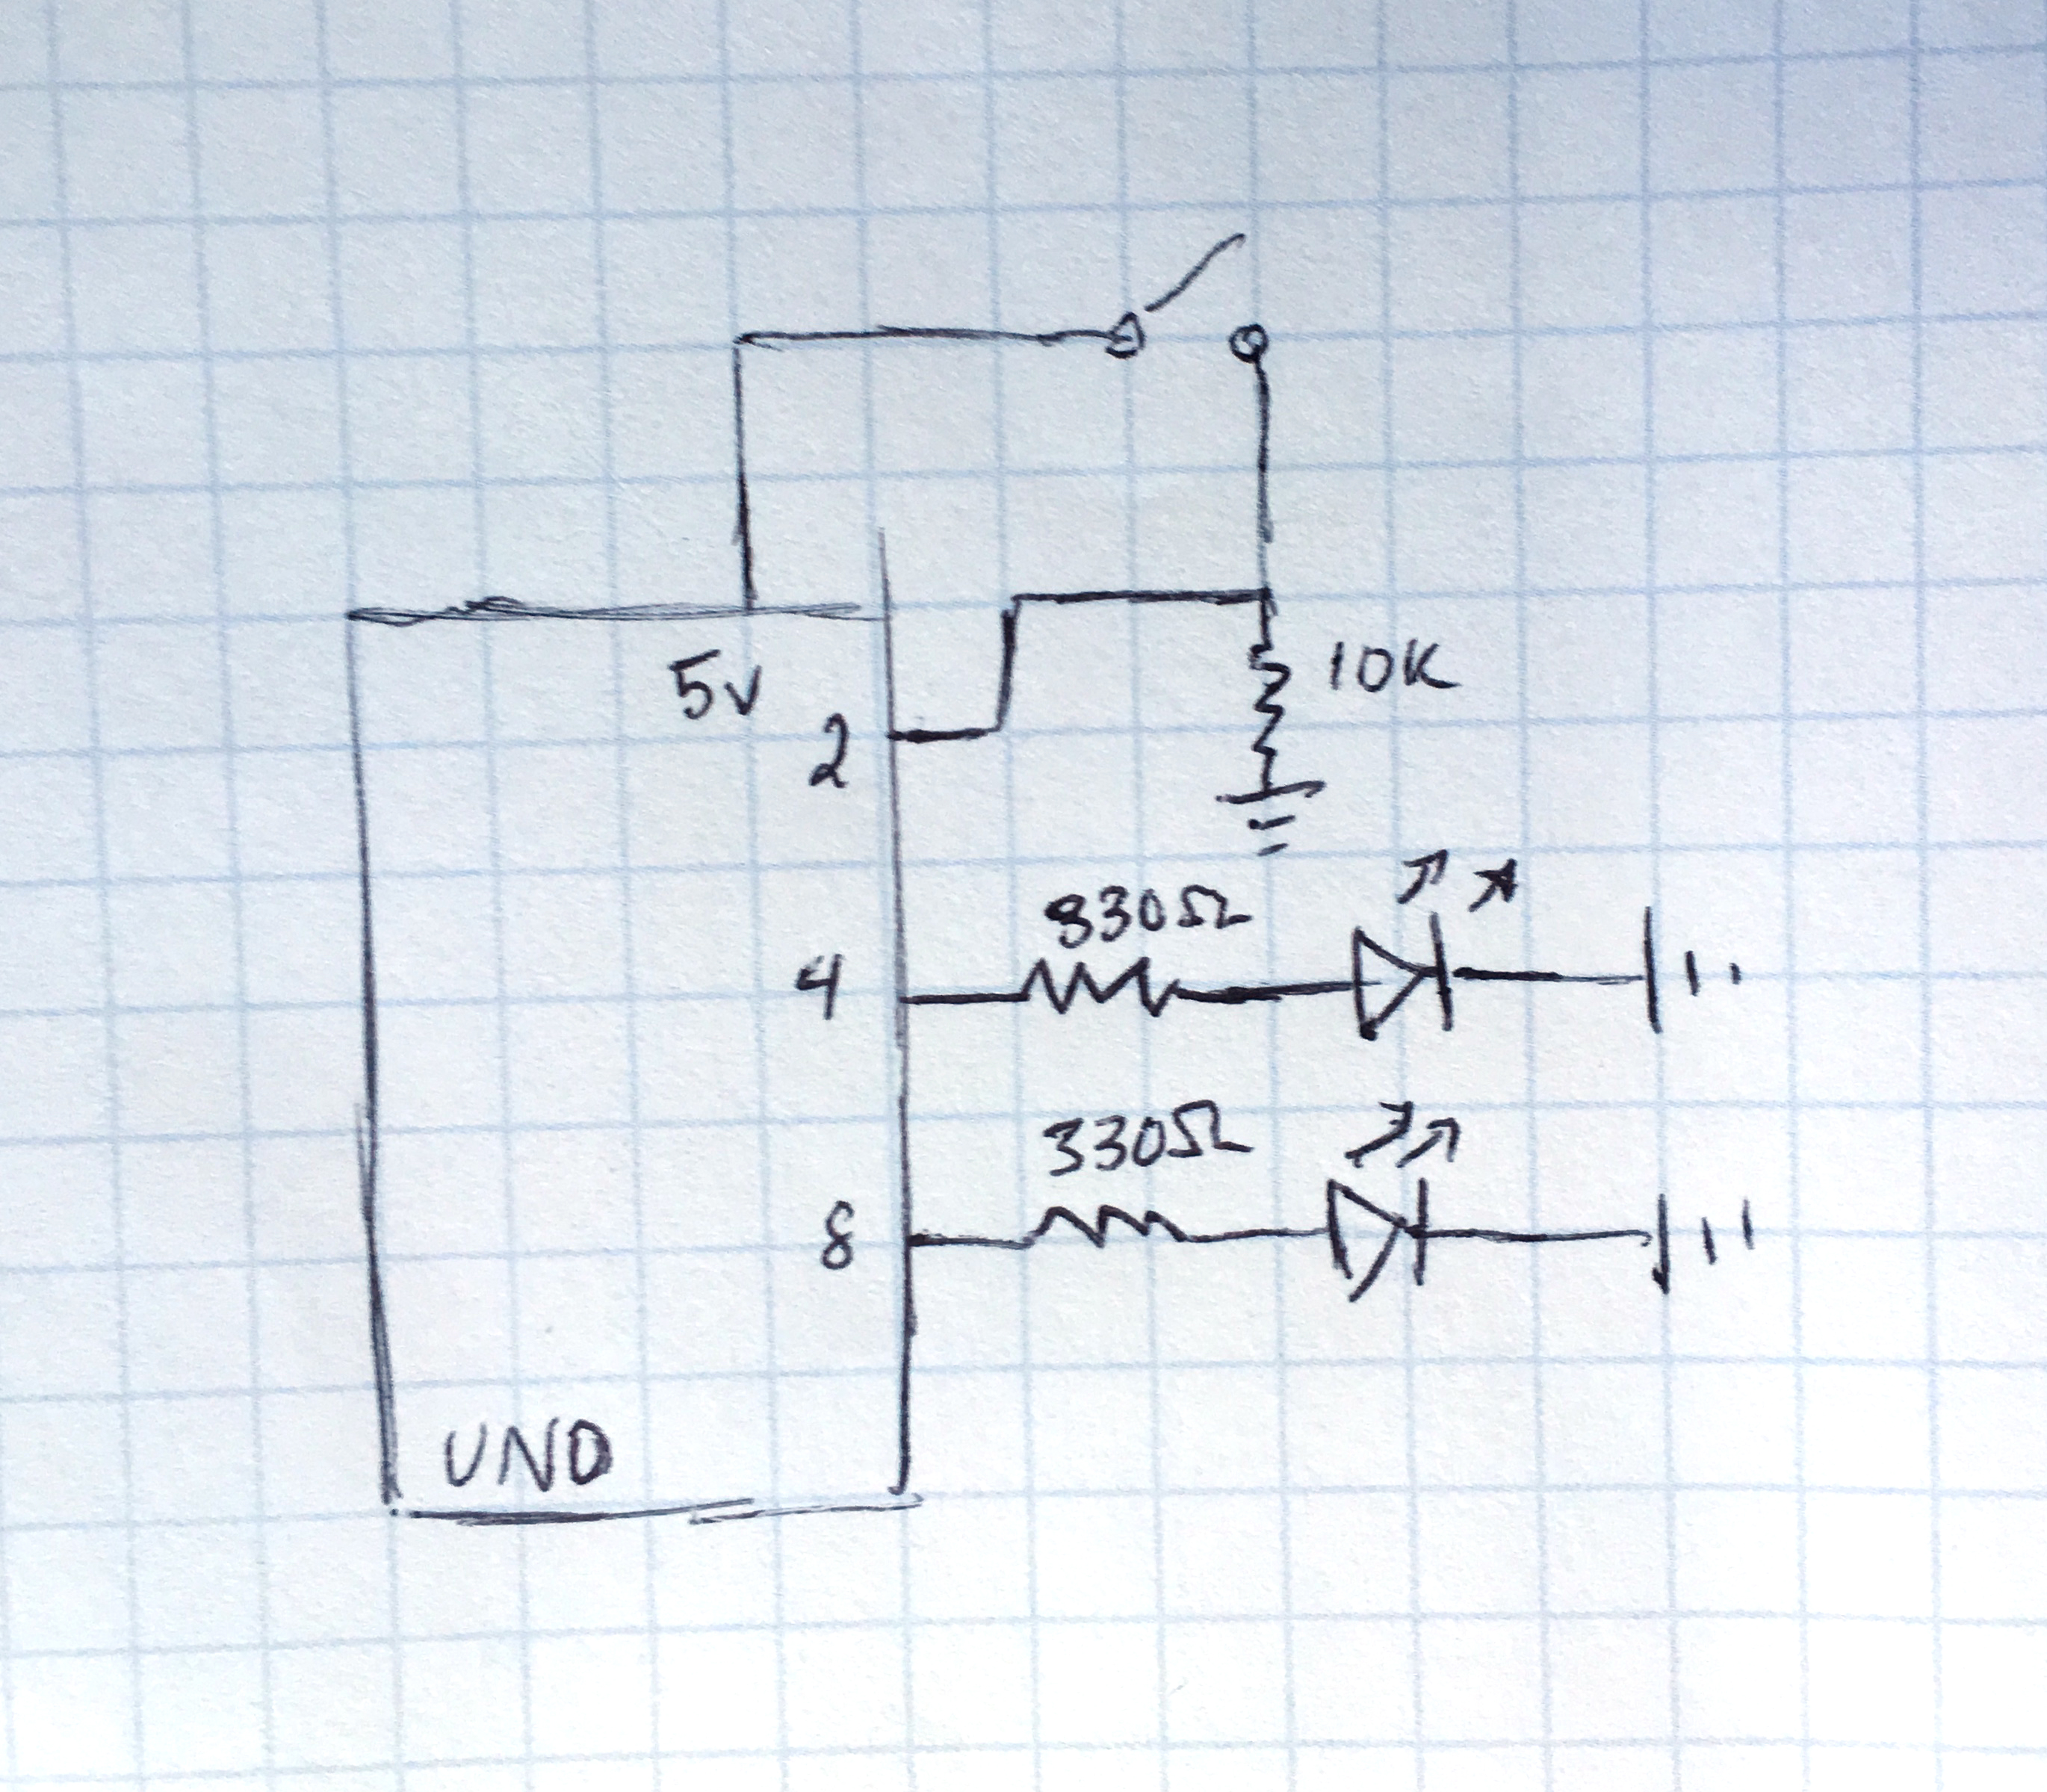 5v
2
10K
330Ω
4
330Ω
8
UNO